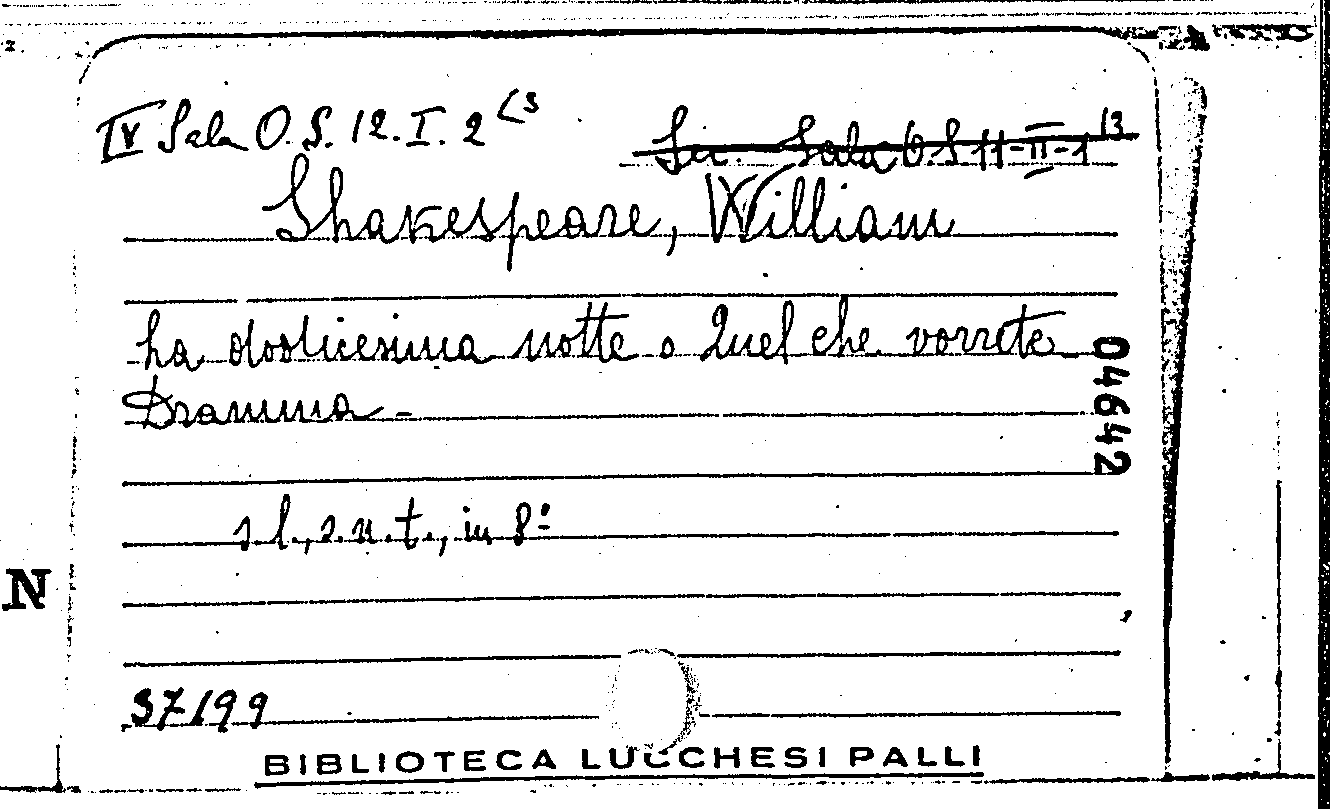 IV Sala O.S. 12. I. 2 (3
Sir. Sala O.S 11-II-1 13
Shakespeare, William
La dodicesima notte o Quel che vorrete
Dramma -
s.l., s.n.t., in 8º
04642
N
37199
BIBLIOTECA LUCCHESI PALLI